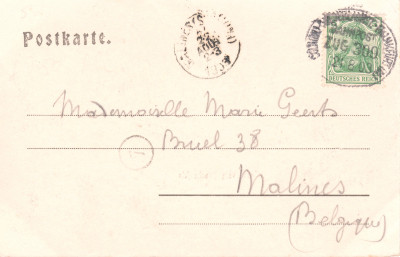 Postkarte.
ZUG 390
DEUTSCHES REICH
Mademoiselle Marie Geerts
Bruel 38
Malines
(Belgique)